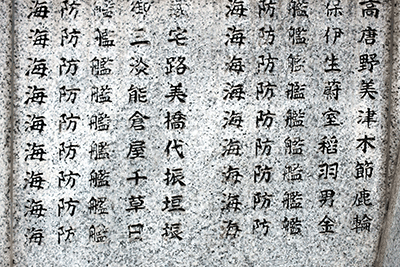 海防艦御蔵 海防艦保高
海防艦三宅 海防艦伊唐
海防艦淡路 海防艦生野
海防艦能美 海防艦蔚美
海防艦倉橋 海防艦室津
海防艦屋代 海防艦稻木
海防艦千振 海防艦羽節
海防艦草垣 海防艦男鹿
海防艦日振 海防艦金輪